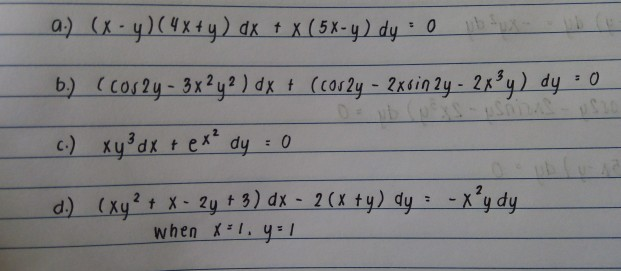 a.) (x - y)(4x + y) dx + x (5x - y) dy = 0
b.) (cos2y - 3x²y²) dx + (cos2y - 2xsin2y - 2x³y) dy = 0
c.) xy³dx + eˣ² dy = 0
d.) (xy² + x - 2y + 3) dx - 2(x + y) dy = -x²y dy
when x=1, y=1